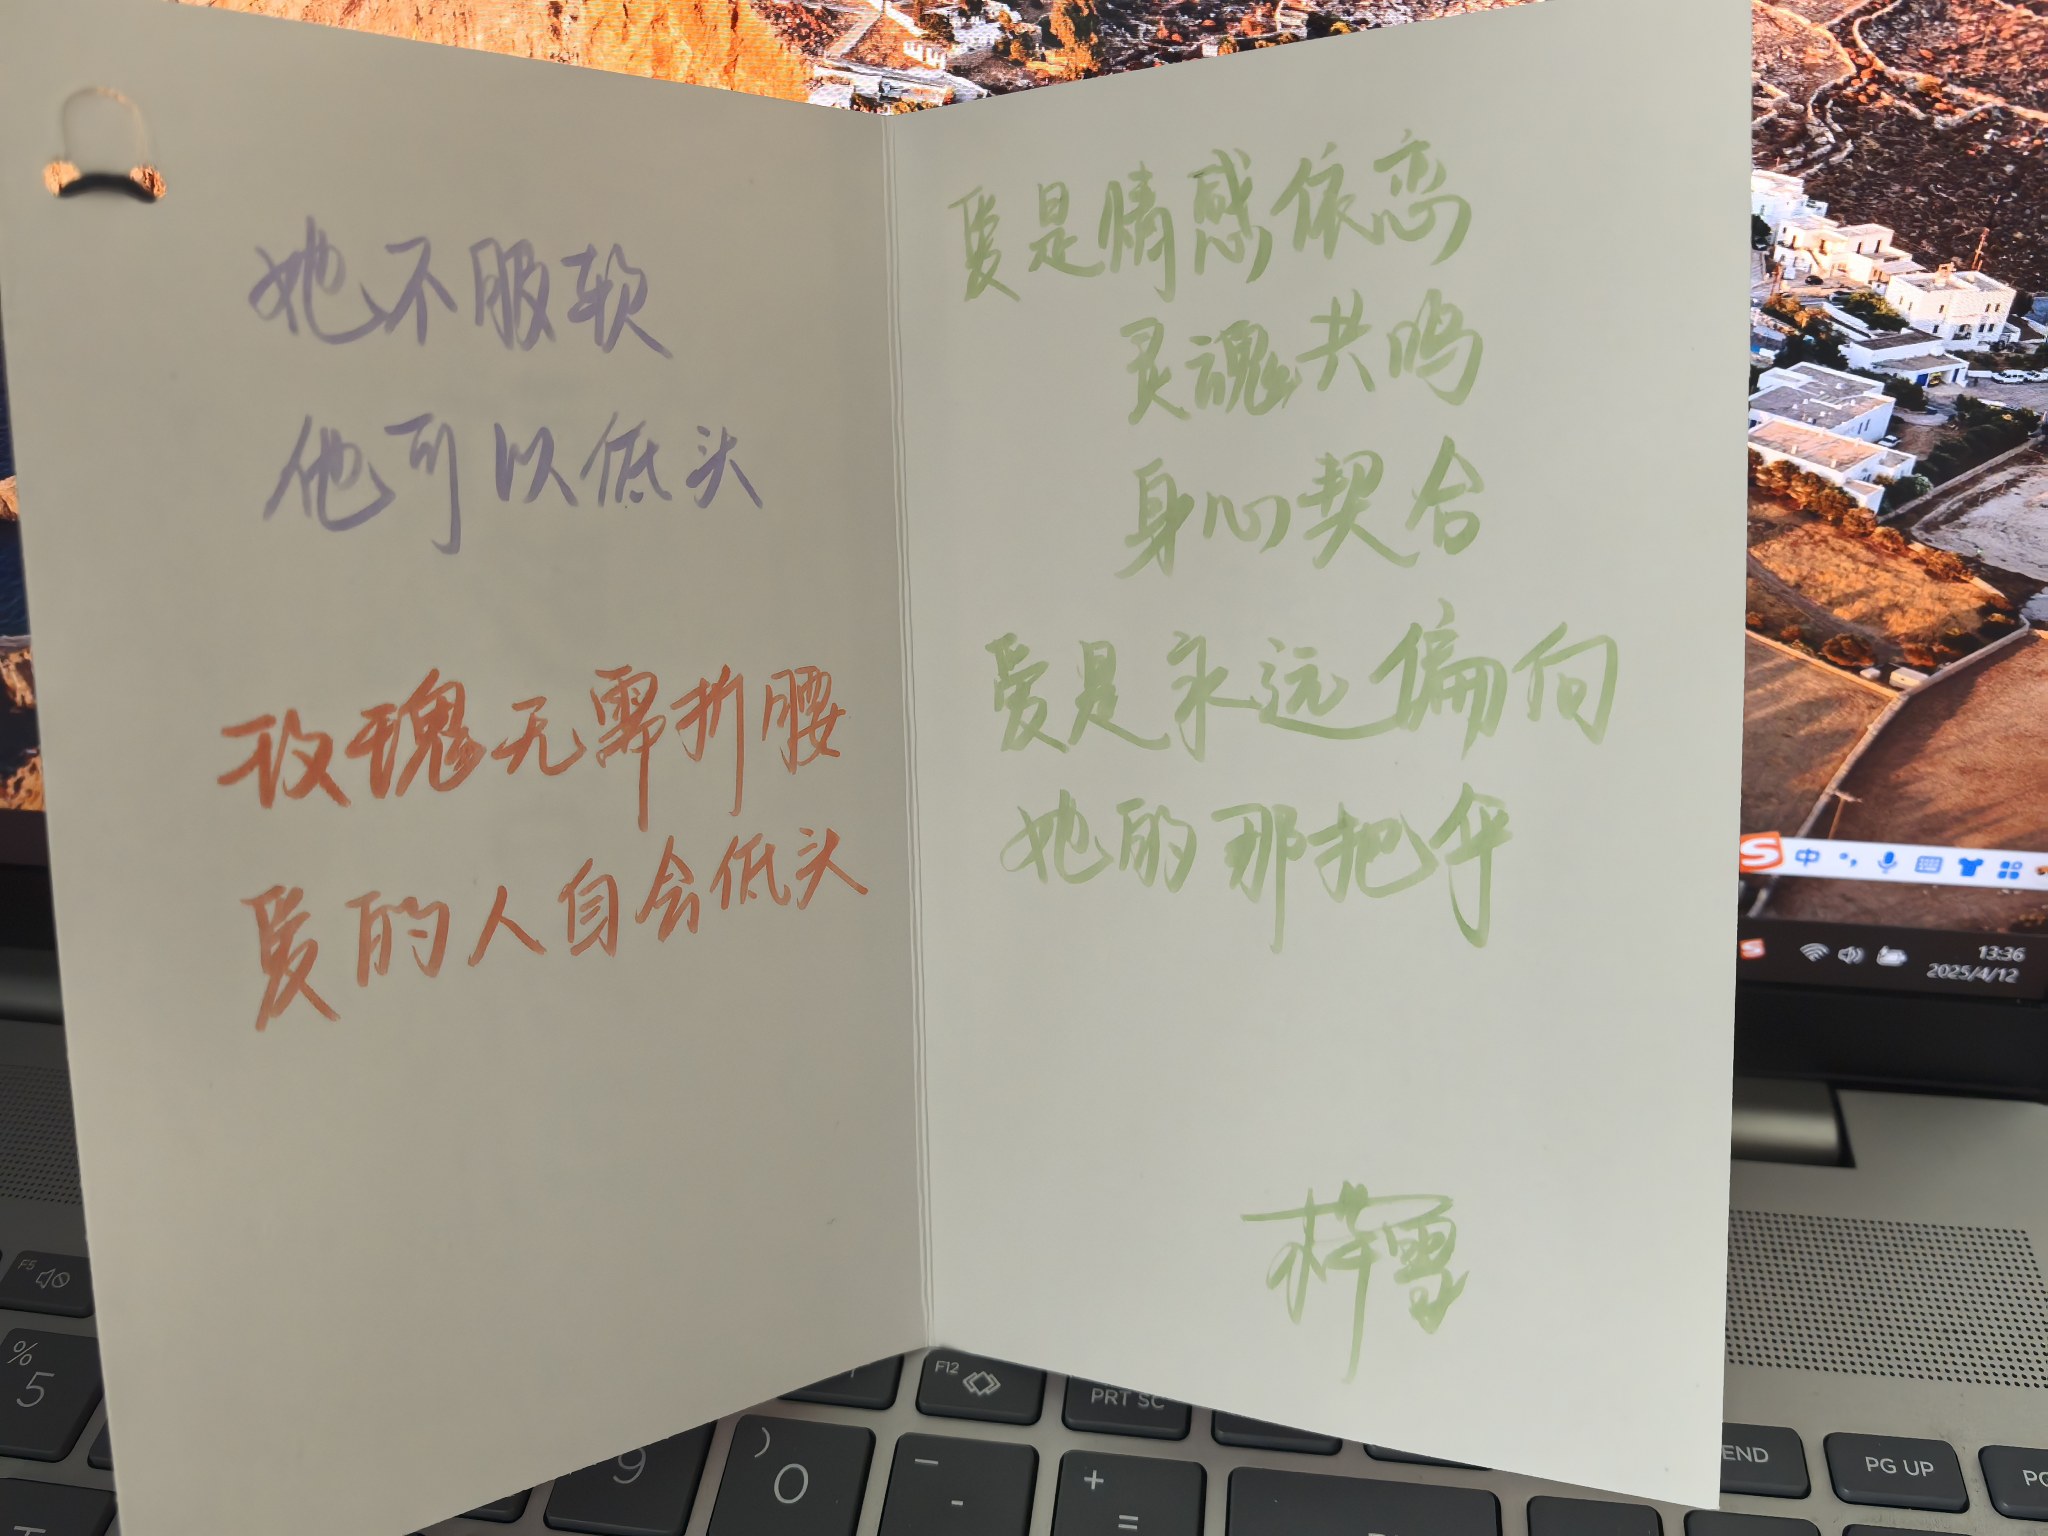 她不服软
他可以低头
玫瑰无需折腰
爱的人自会低头
爱是情感依恋
灵魂共鸣
身心契合
爱是永远偏向
她的那把伞
中
13:36
2025/4/12
F5
%
5
9
)
0
F12
PRT SC
-
+
=
END
PG UP